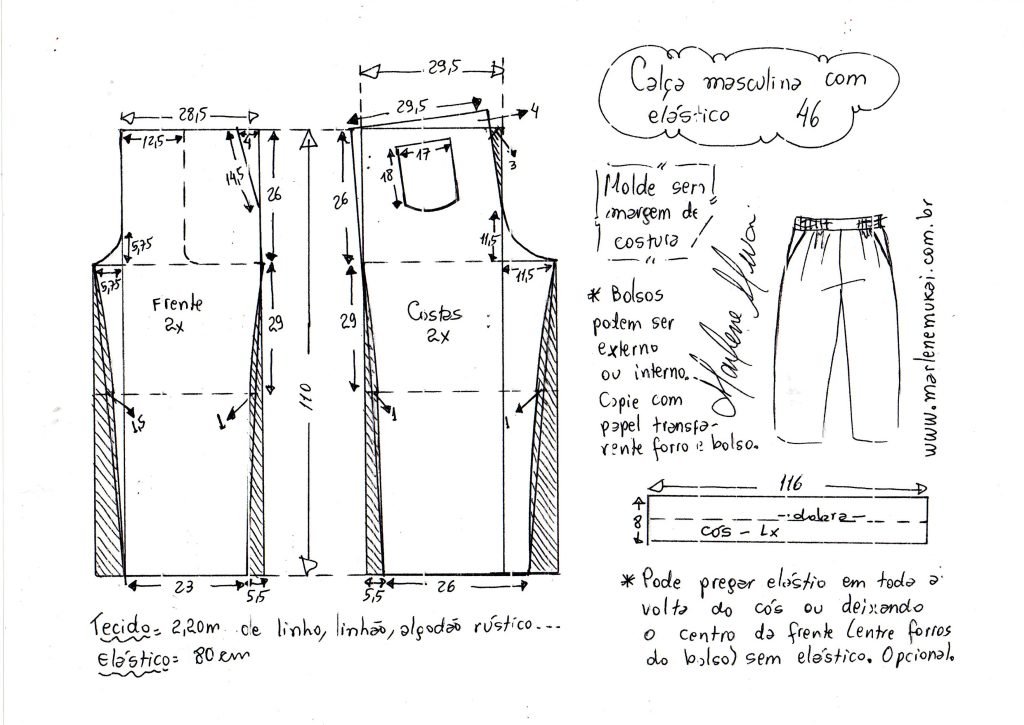 Calça masculina com
elástico 46
Molde sem
margem de
costura
* Bolsos
podem ser
externo
ou interno.
Copie com
papel transpa-
rente forro e bolso.
Marlene Mukai.
www.marlenemukai.com.br
28,5
12,5
4
14,5
26
5,75
5,75
Frente
2x
29
1,5
1
23
5,5
110
29,5
29,5
4
3
17
18
26
11,5
11,5
Costas
2x
29
1
1
5,5
26
116
8
dobra
cós - 1x
Tecido= 2,20m de linho, linhão, algodão rústico...
Elástico= 80cm
* Pode pregar elástio em toda a
volta do cós ou deixando
o centro da frente (entre forros
do bolso) sem elástico. Opcional.